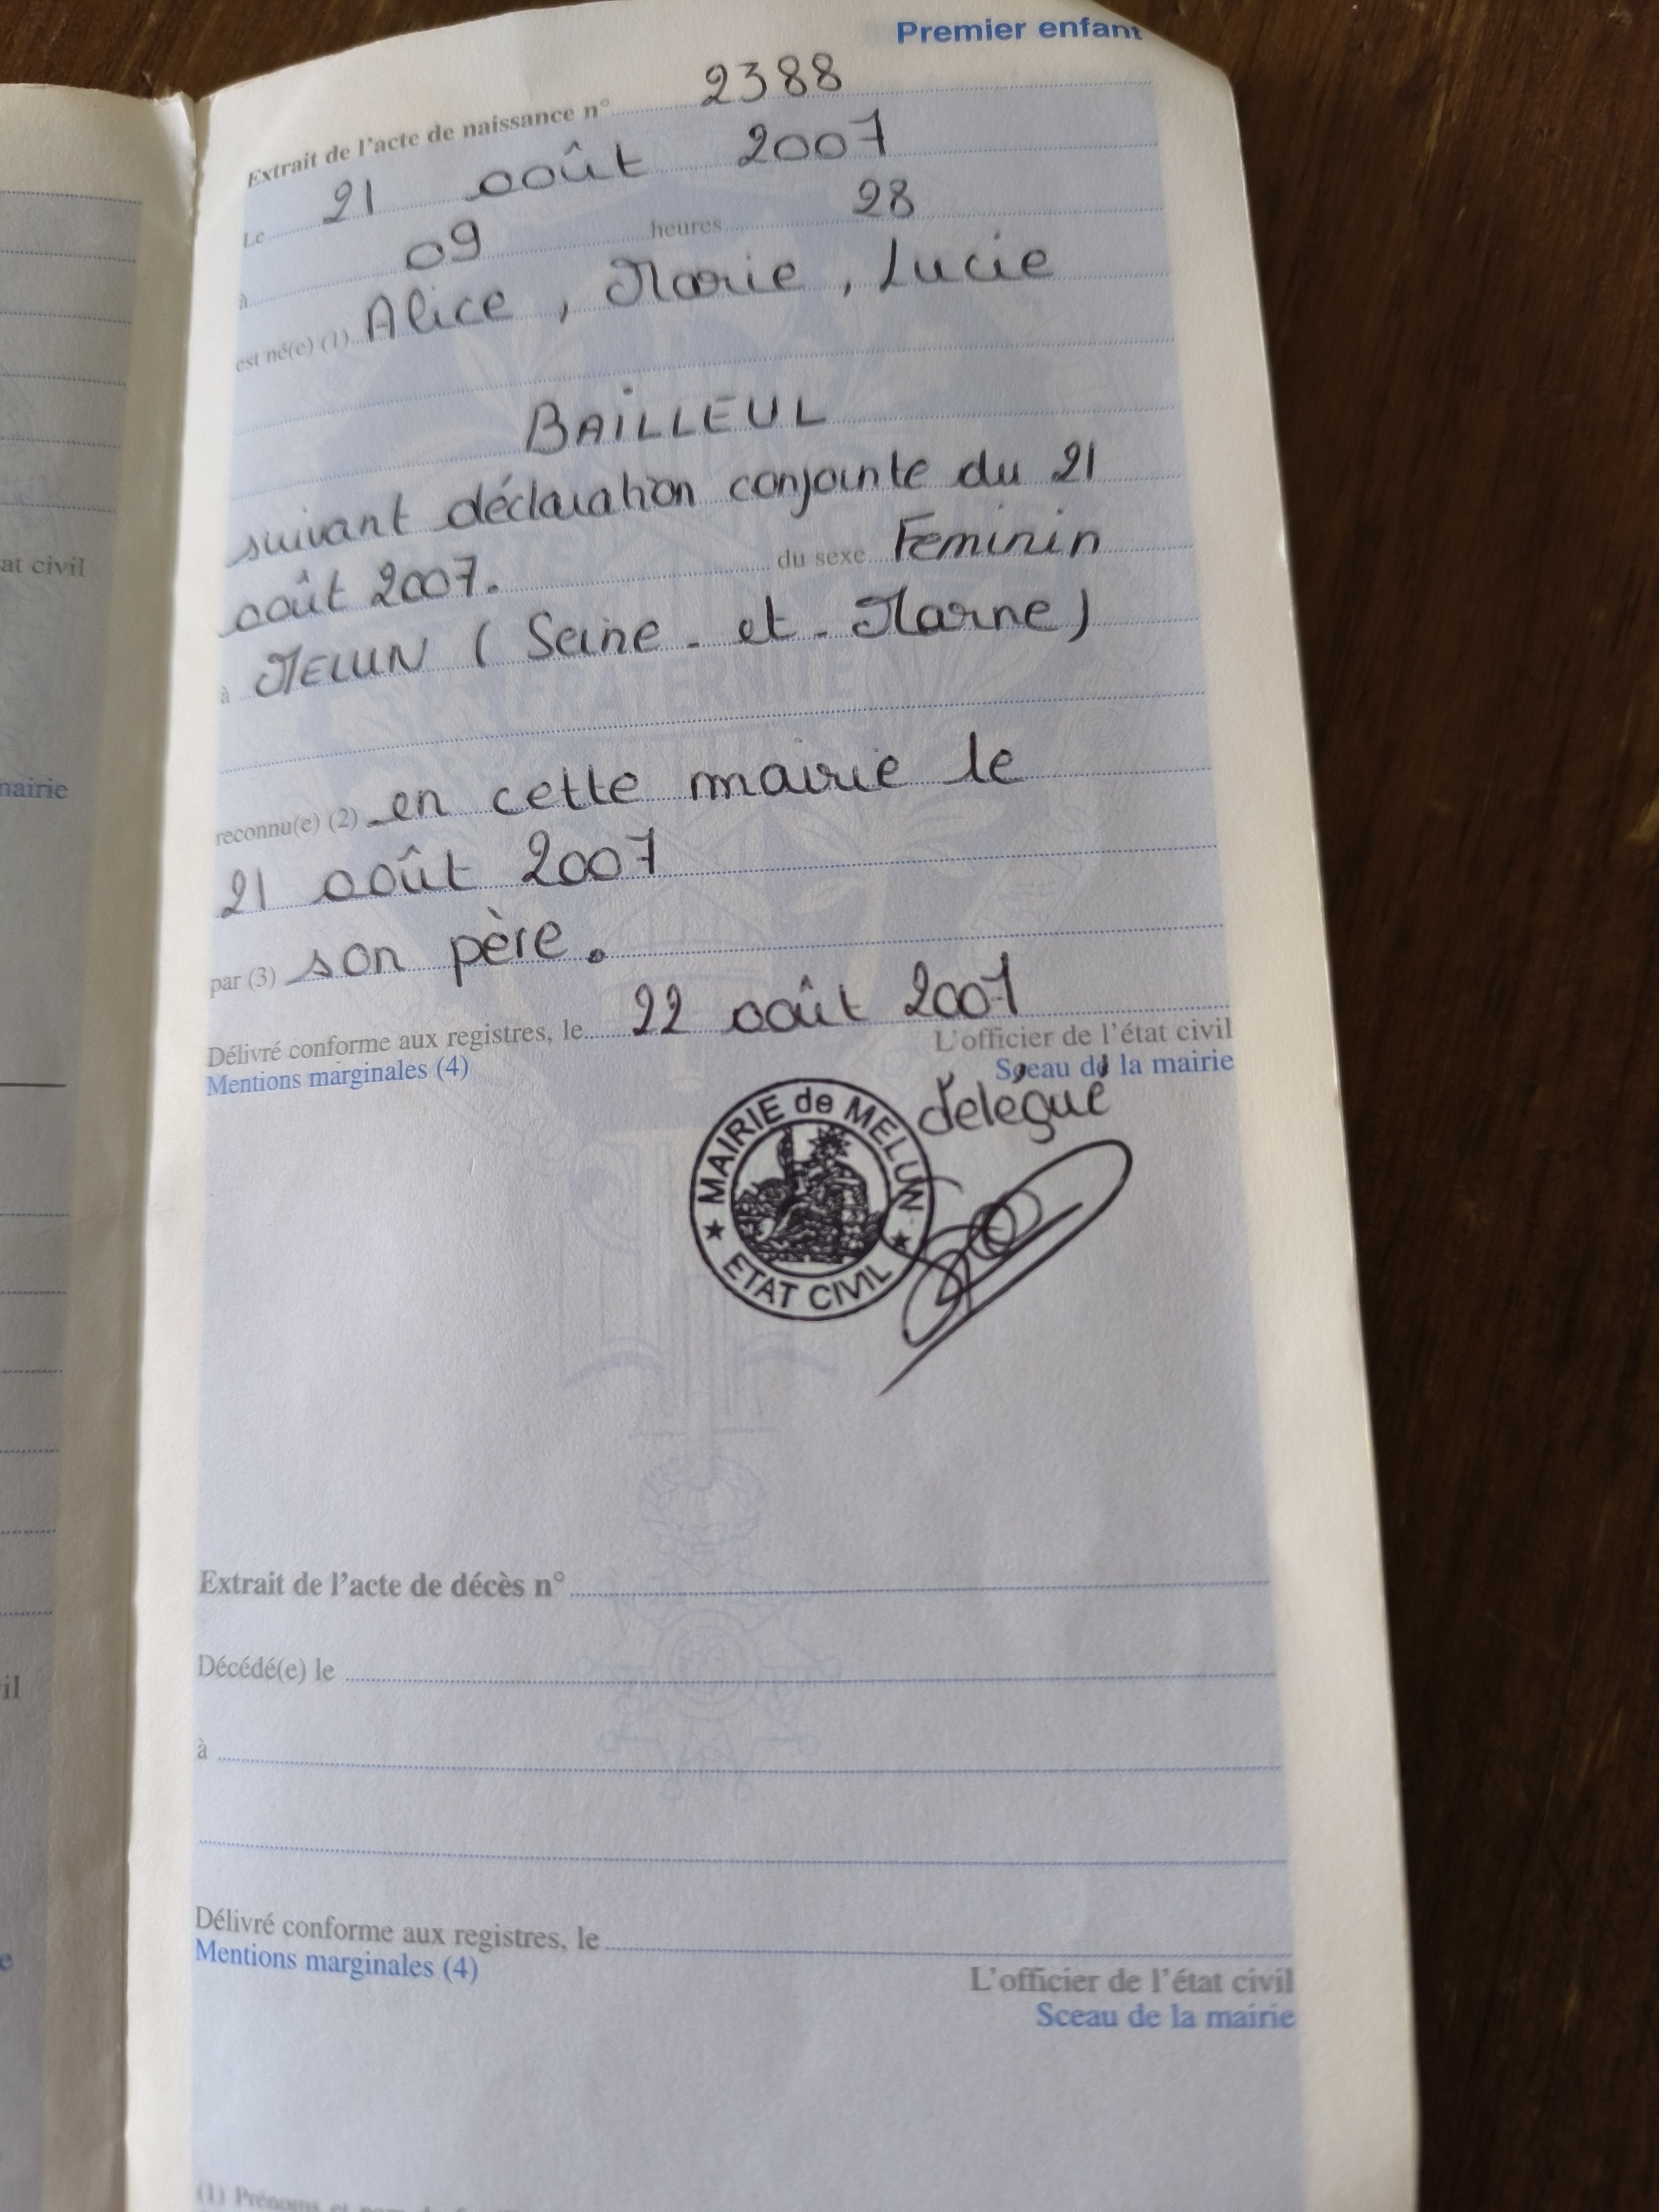 Premier enfant
Extrait de l'acte de naissance n° 2388
Le 21 août 2007
à 09 heures 28
est né(e) (1) Alice, Marie, Lucie
BAILLEUL
suivant déclaration conjointe du 21
août 2007. du sexe Feminin
à MELUN (Seine-et-Marne)
reconnu(e) (2) en cette mairie le
21 août 2007
par (3) son père.
Délivré conforme aux registres, le 22 août 2007
Mentions marginales (4)
L'officier de l'état civil
Sceau de la mairie
délégué
MAIRIE de MELUN
ETAT CIVIL
FRATERNITE
Extrait de l'acte de décès n°
Décédé(e) le
à
Délivré conforme aux registres, le
Mentions marginales (4)
L'officier de l'état civil
Sceau de la mairie
(1) Prénoms et
at civil
mairie
il
e